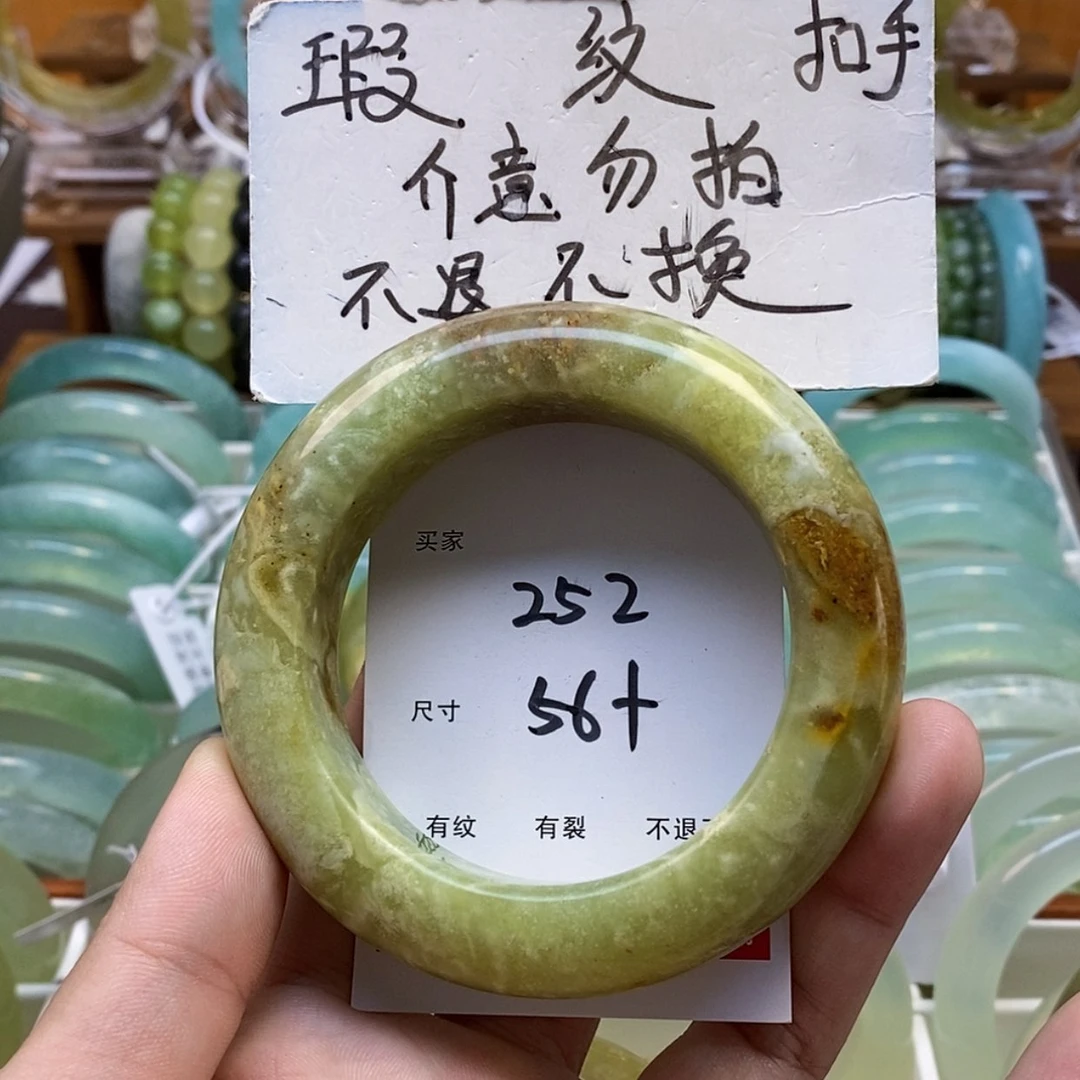 瑕 纹 扣手
介意勿拍
不退不换
买家
252
尺寸 56+
有纹 有裂 不退